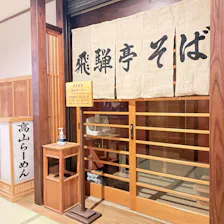 飛騨亭そば
高山らーめん